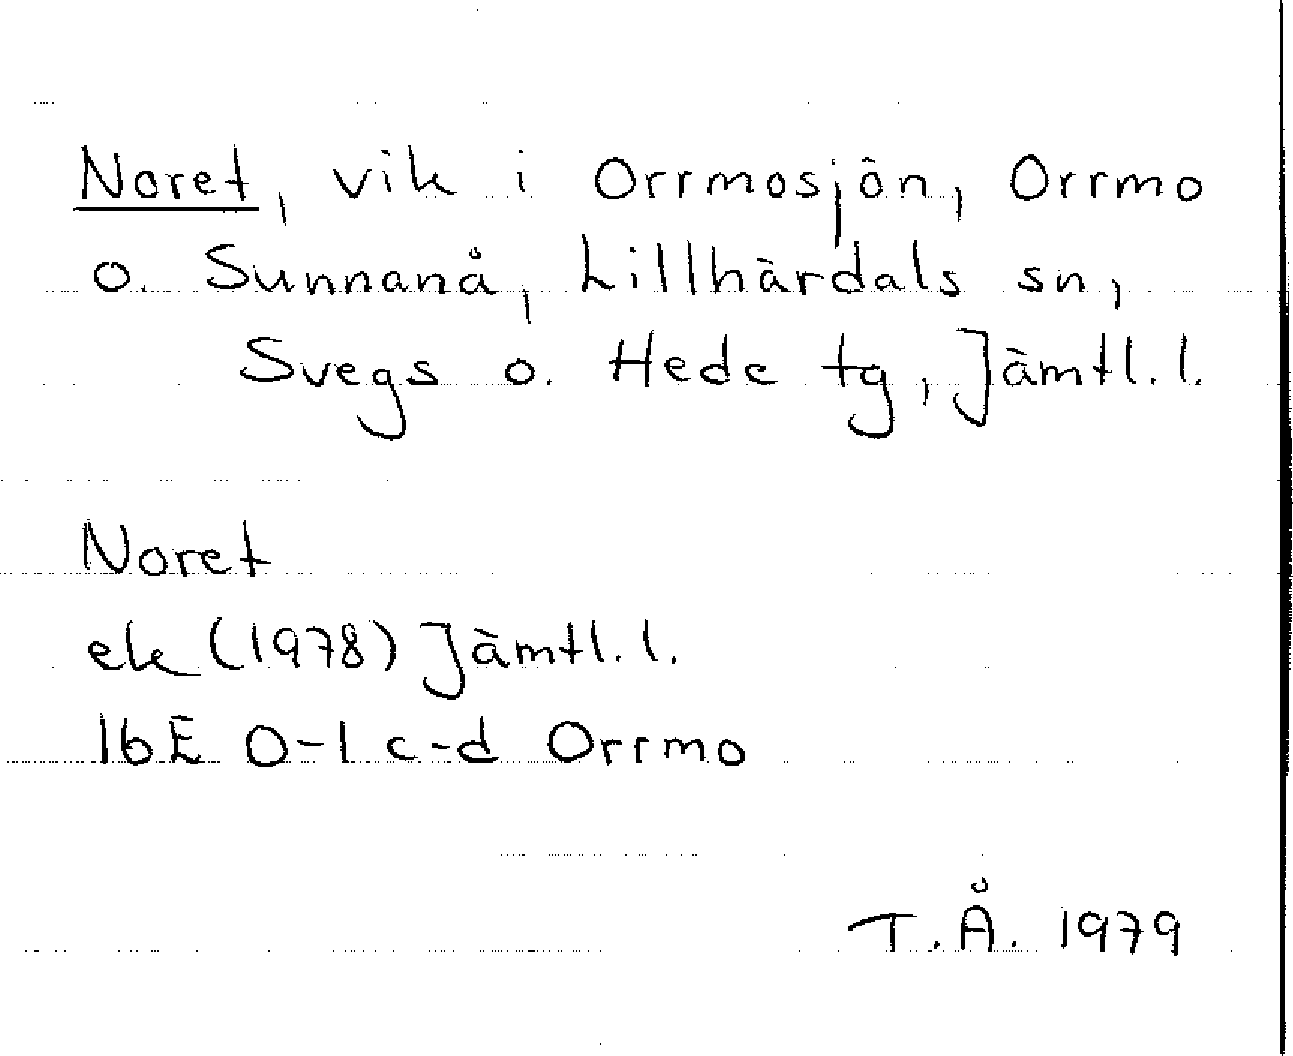 Noret, vik i Orrmosjön, Orrmo
o. Sunnanå, Lillhärdals sn,
Svegs o. Hede tg, Jämtl. l.
Noret
ek (1978) Jämtl. l.
16E 0-1 c-d Orrmo
T.Å. 1979